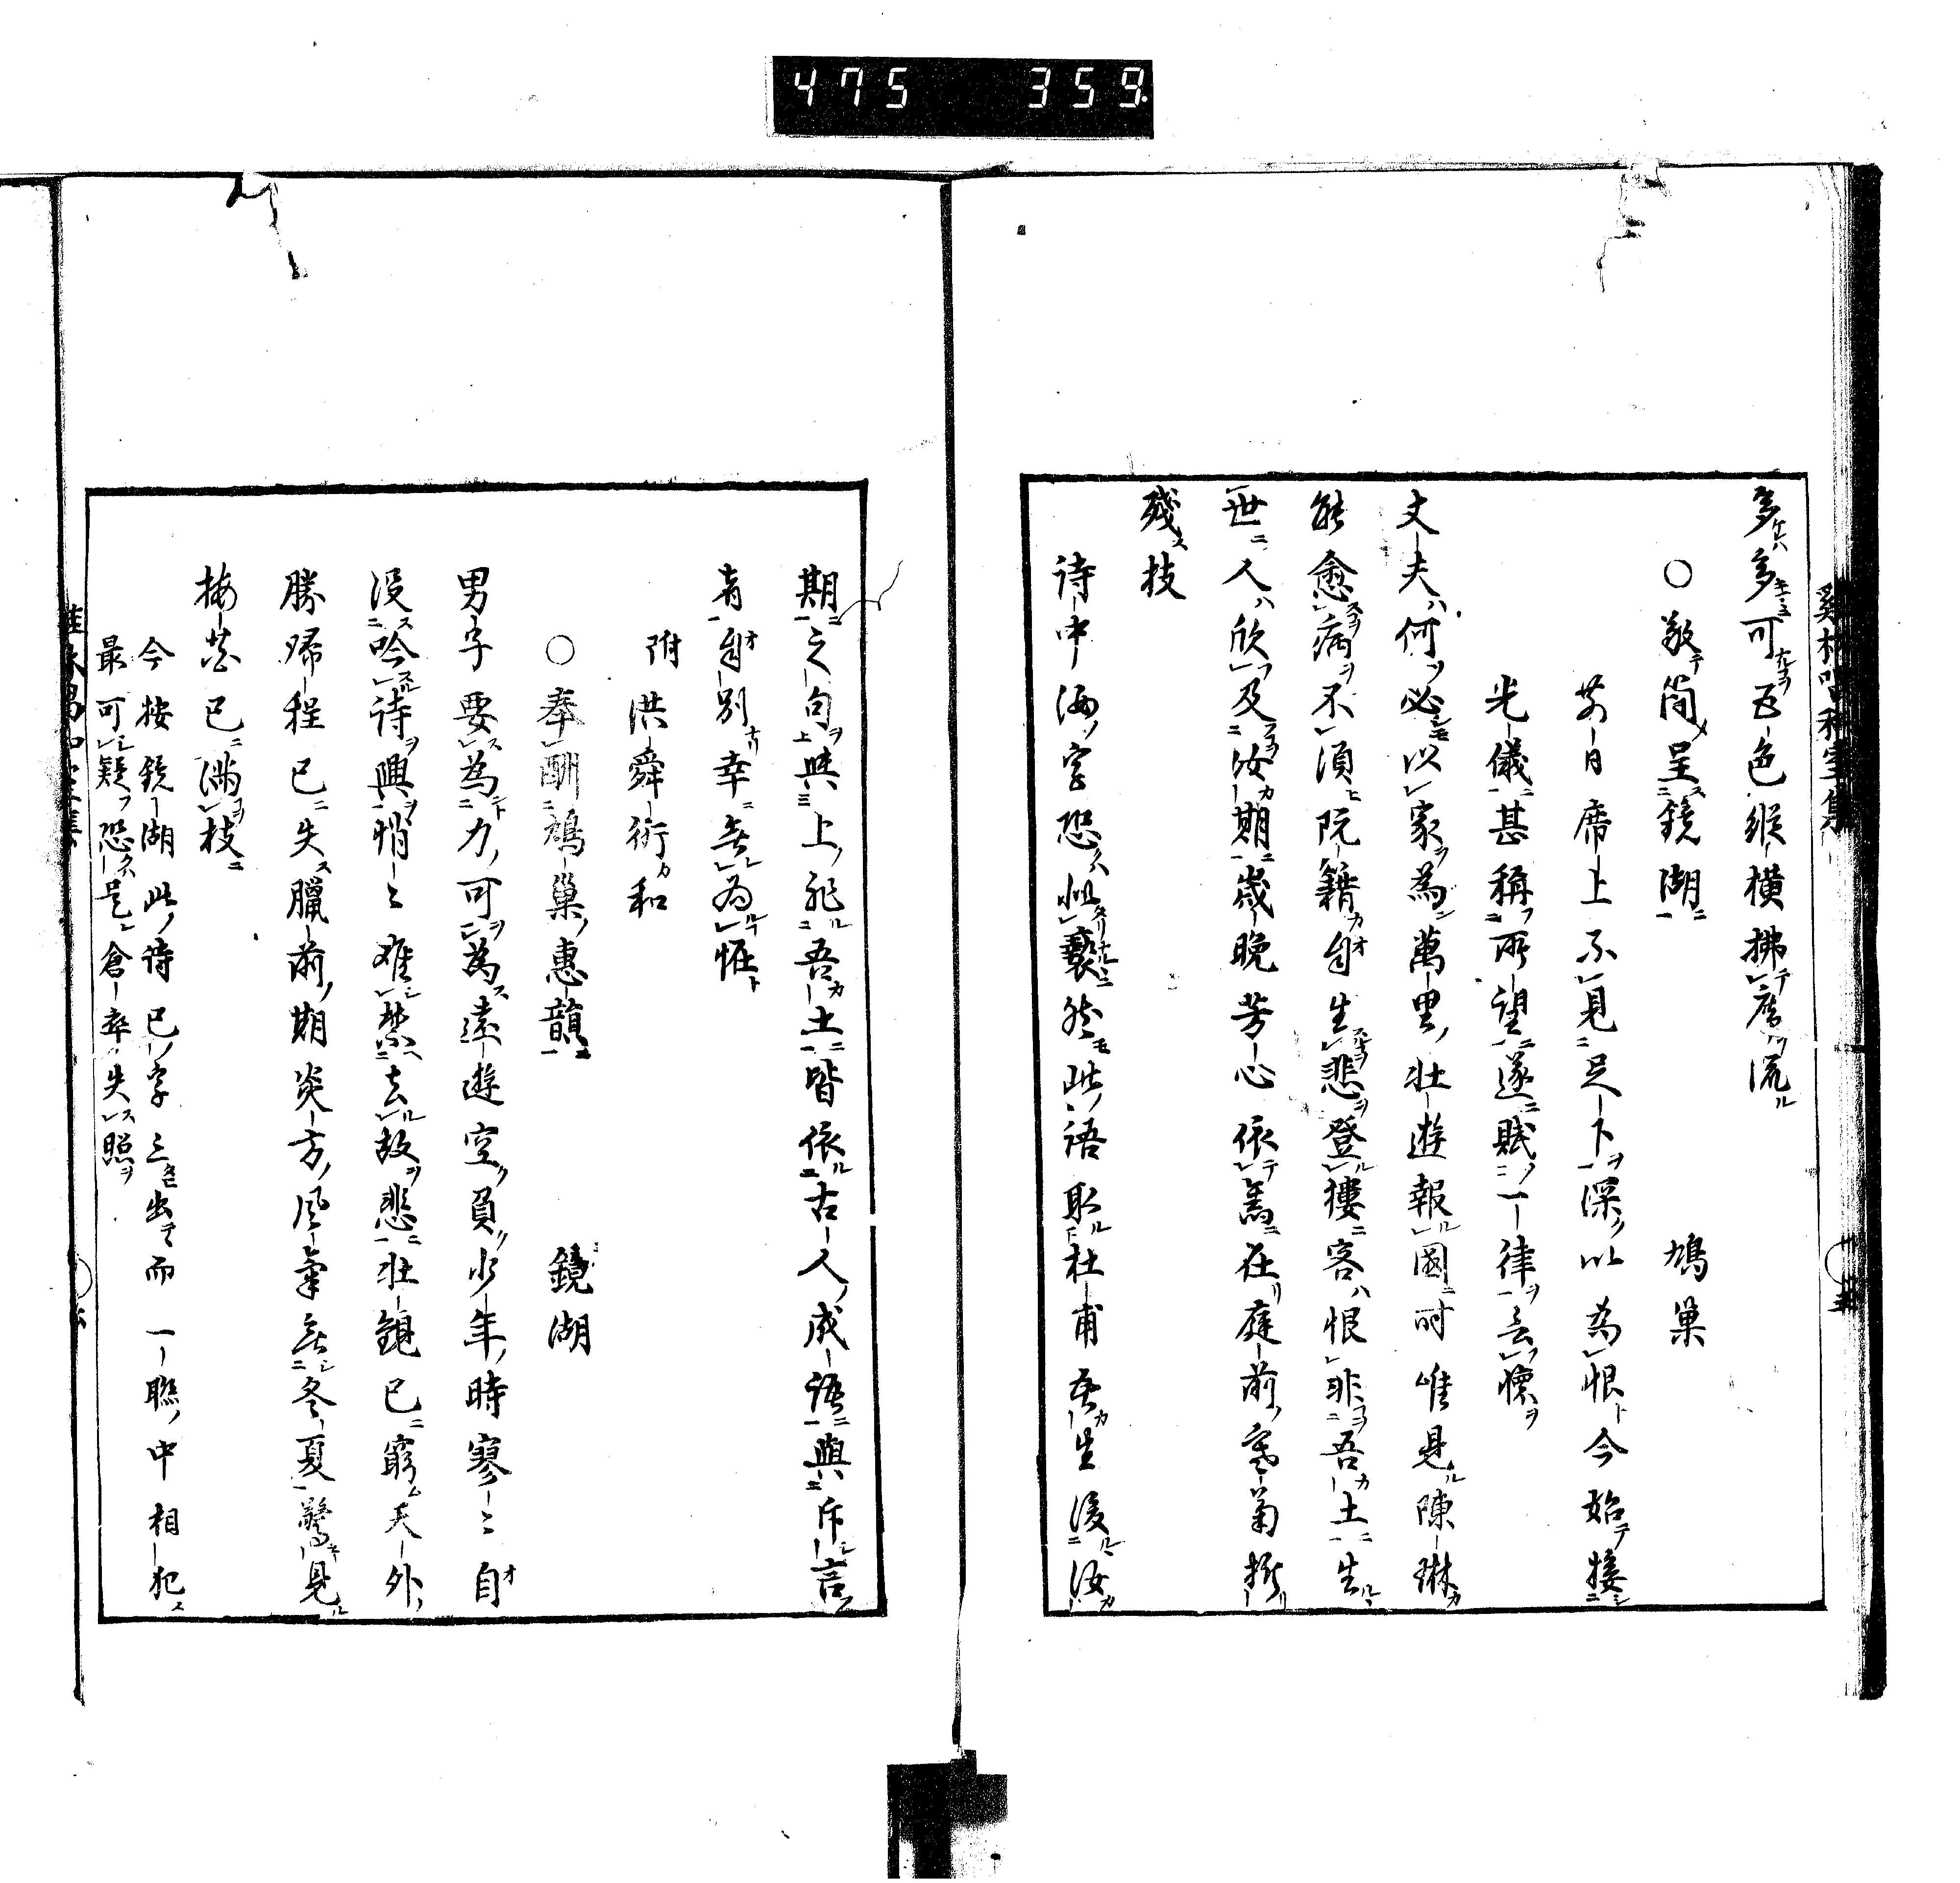 475 359
雞林唱和定集
多多可五色縱橫拂席流
○敬簡呈鏡湖 鳩巢
前日席上不見足下深以為恨今始接
光儀甚稱所望遂賦一律言懷
丈夫何必以家為萬里壯遊報國時唯見陳琳
能愈病不須阮籍自生悲登樓客恨非吾土生
世人欣及汝期歲晚芳心依舊在庭前寒菊擬
殘枝
詩中汝字恐似褻然此語取杜甫吾生後汝
期之句與上非吾土皆依古人成語與斥言
者自別幸無為怪
附洪舜衍和
○奉酬鳩巢惠韻 鏡湖
男子要為力可為遠遊空負少年時寥〻自
沒吟詩興悄〻難禁去故悲壯觀已窮天外
勝歸程已失臘前期炎方風氣無冬夏驚見
梅花已滿枝
今按鏡湖此詩已字三出而一聯中相犯
最可疑恐是倉卒失照